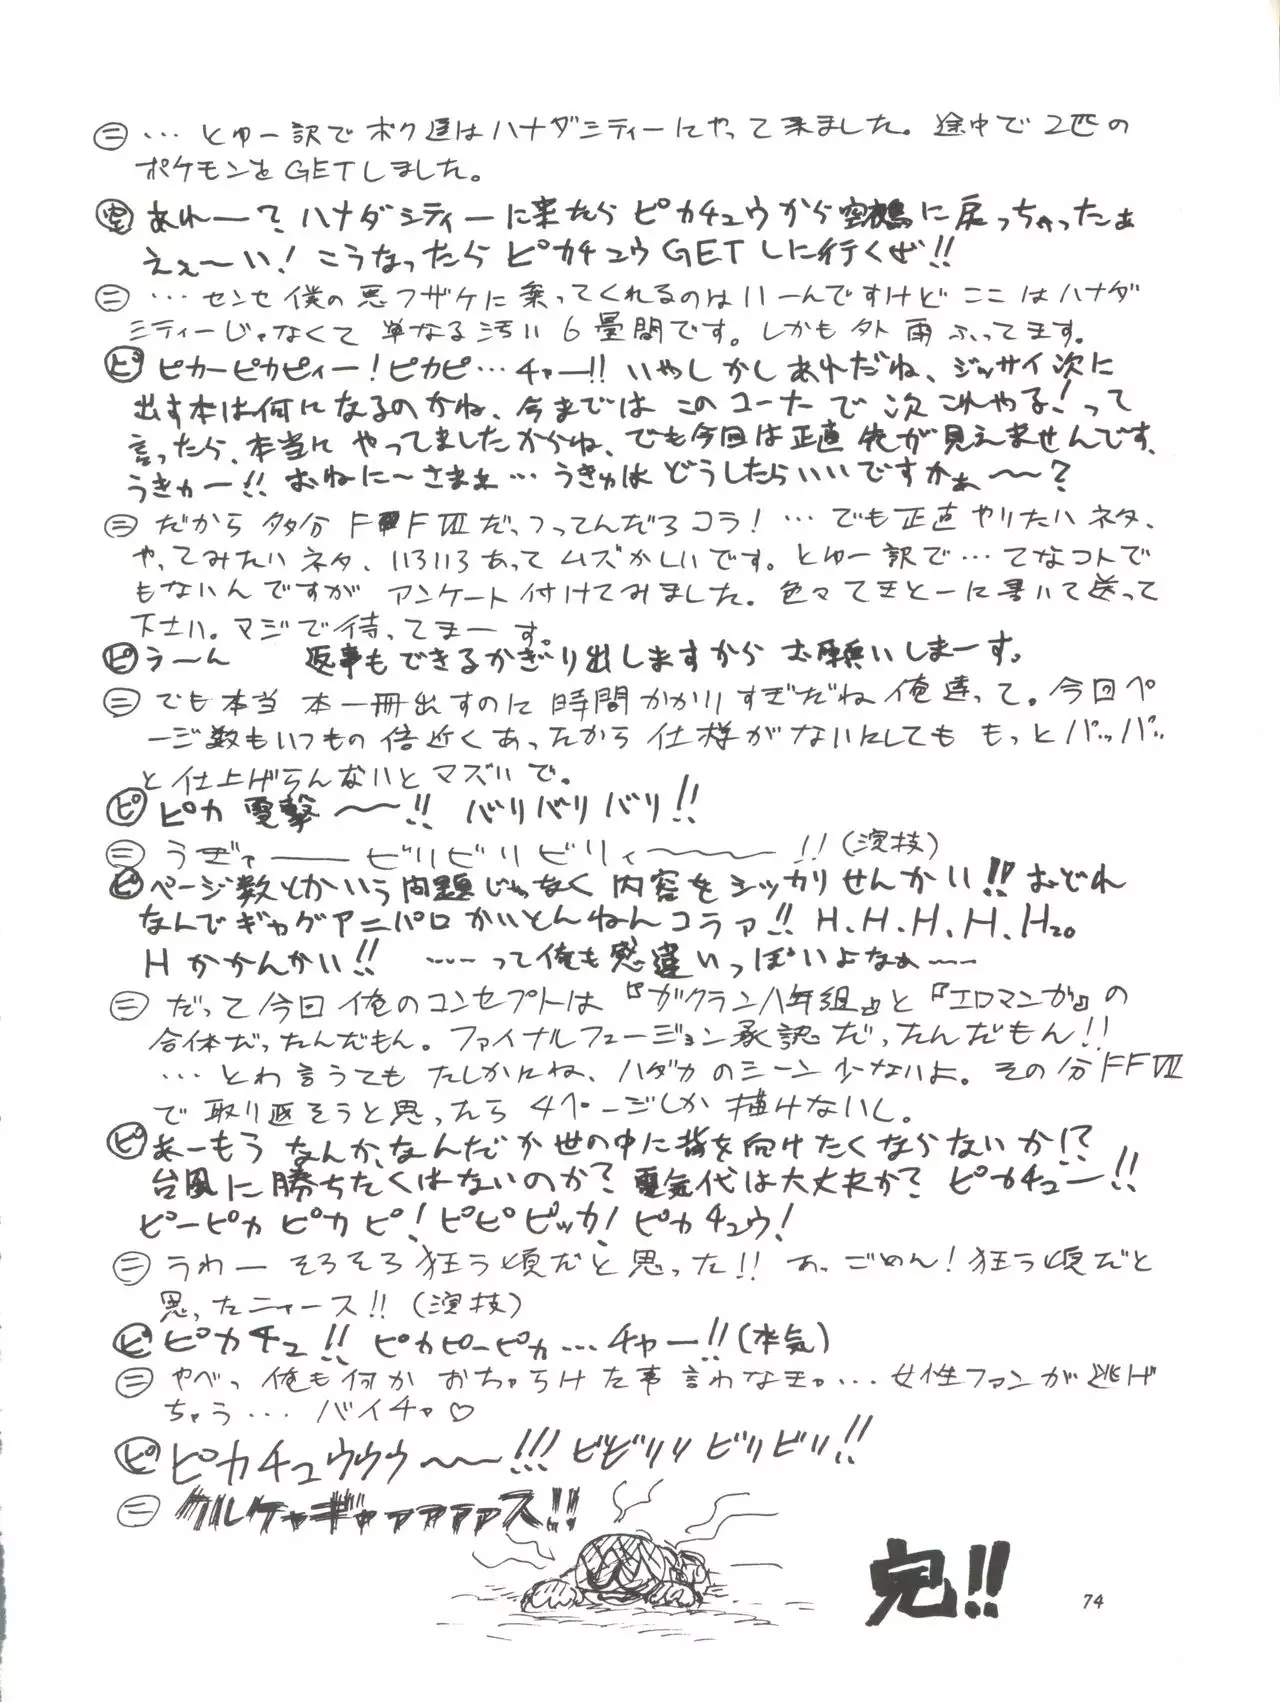 ㊁ …とゆー訳でボク達はハナダシティーにやって来ました。途中で2匹の
ポケモンをGETしました。
あれーー? ハナダシティーに来たらピカチュウから空鶴に戻っちゃったぁ
えぇ〜い! こうなったらピカチュウGETしに行くぜ!!
㊁ …センセ僕の悪フザケに乗ってくれるのはいーんですけどここはハナダ
シティーじゃなくて単なる汚い6畳間です。しかも外雨ふってます。
ピ ピカーピカピィー!ピカピ…チャー!! いやしかしあれだね、ジッサイ次に
出す本は何になるのかね、今まではこのコーナーで次これやる!って
言ったら、本当にやってましたからね、でも今回は正直先が見えませんです、
うきゅー!! おねに〜さまぁ…うきゅはどうしたらいいですかぁ〜〜?
㊁ だから多分FFⅦだっつってんだろコラ! …でも正直やりたいネタ、
やってみたいネタ、いろいろあってムズかしいです。とゆー訳で…てなコトで
もないんですがアンケート付けてみました。色々てきとーに書いて送って
下さい。マジで待ってまーす。
ピ うーん 返事もできるかぎり出しますからお願いしまーす。
㊁ でも本当本一冊出すのに時間かかりすぎだね俺達って。今回ペ
ージ数もいつもの倍近くあったから仕様がないにしてももっとパッパッ
と仕上げらんないとマズいで。
ピ ピカ電撃〜〜!! バリバリバリ!!
㊁ うぎァーービリビリビリィ〜〜〜!!(演技)
ピ ページ数とかいう問題じゃなく内容をシッカリせんかい!! おどれ
なんでギャグアニパロかいとんねんコラァ!! H.H.H.H.H₂O
Hかかんかい!! ……って俺も感違いっぽいよなぁ……
㊁ だって今回俺のコンセプトは『ガクラン八年組』と『エロマンガ』の
合体だったんだもん。ファイナルフュージョン承認だったんだもん!!
…とわ言うてもたしかにね、ハダカのシーン少ないよ。その分FFⅦ
で取り返そうと思ったら4ページしか描けないし。
ピ あーもうなんか、なんだか世の中に背を向けたくならないか!?
台風に勝ちたくはないのか? 電気代は大丈夫か? ピカチュー!!
ピーピカピカピ! ピピピッカ! ピカチュウ!
㊁ うわーそろそろ狂う頃だと思った!! あ、ごめん! 狂う頃だと
思ったニャース!!(演技)
ピ ピカチュ!! ピカピーピカ…チャー!!(本気)
㊁ やべっ俺も何かおちゃらけた事言わなきゃ…女性ファンが逃げ
ちゃう…バイチャ♡
ピ ピカチュウウウ〜〜!!! ビビリリビリビリ!!
㊁ クルケャギャァァァァァス!!
完!!
74